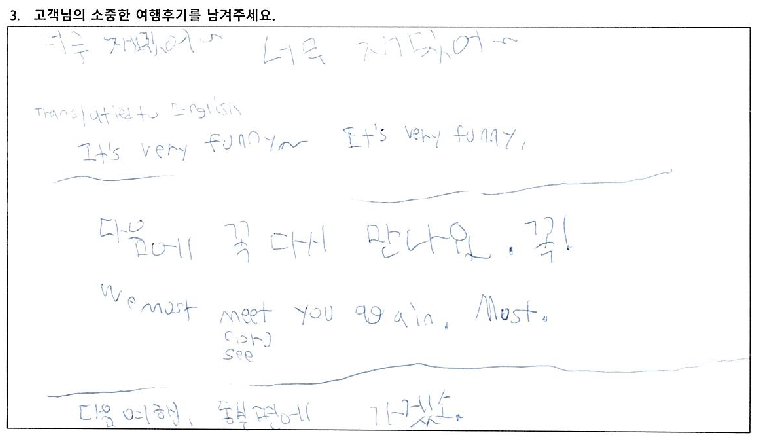 3. 고객님의 소중한 여행후기를 남겨주세요.
너무 재밌어~ 너무 재밌어~
Translatied to English
It's very funny~ It's very funny,
다음에 꼭 다시 만나요. 꼭!
We most meet you again. Most.
(or)
see
다음 여행, 동부편에 가겠소.